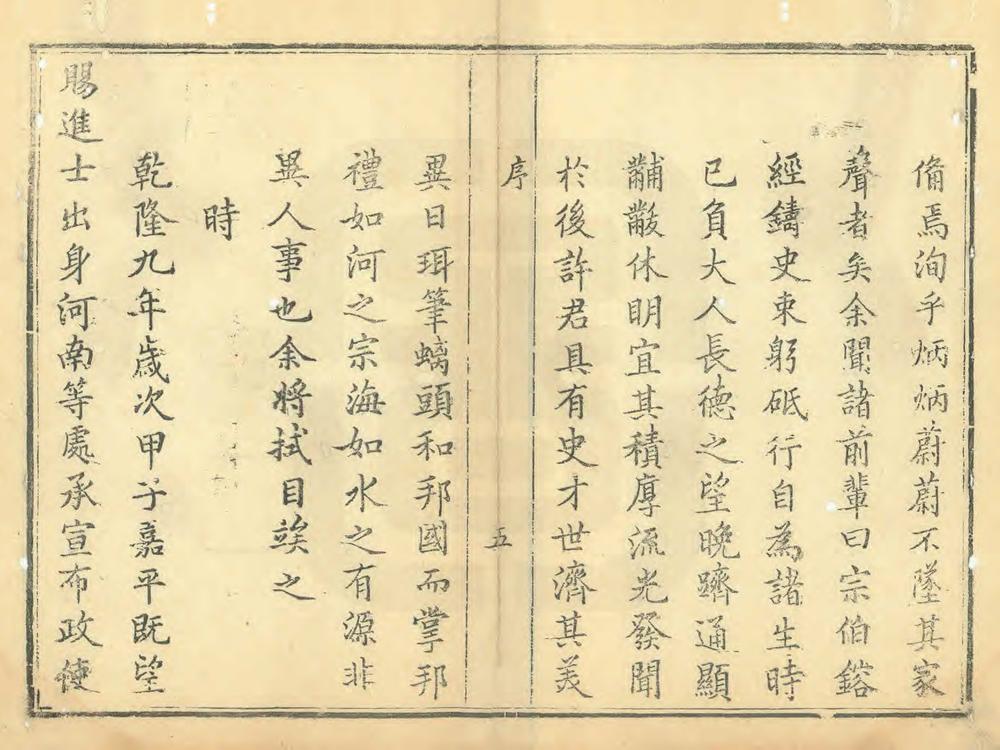 備焉洵乎炳炳蔚蔚不墜其家
聲者矣余聞諸前輩曰宗伯鎔
經鑄史束躬砥行自為諸生時
已負大人長德之望晚躋通顯
黼黻休明宜其積厚流光發聞
於後許君具有史才世濟其美
序
五
異日珥筆螭頭和邦國而掌邦
禮如河之宗海如水之有源非
異人事也余將拭目竢之
時
乾隆九年歲次甲子嘉平既望
賜進士出身河南等處承宣布政使